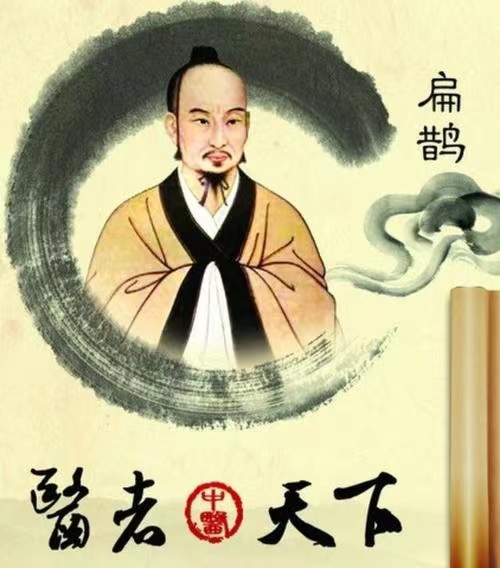 扁鹊
醫者中醫天下